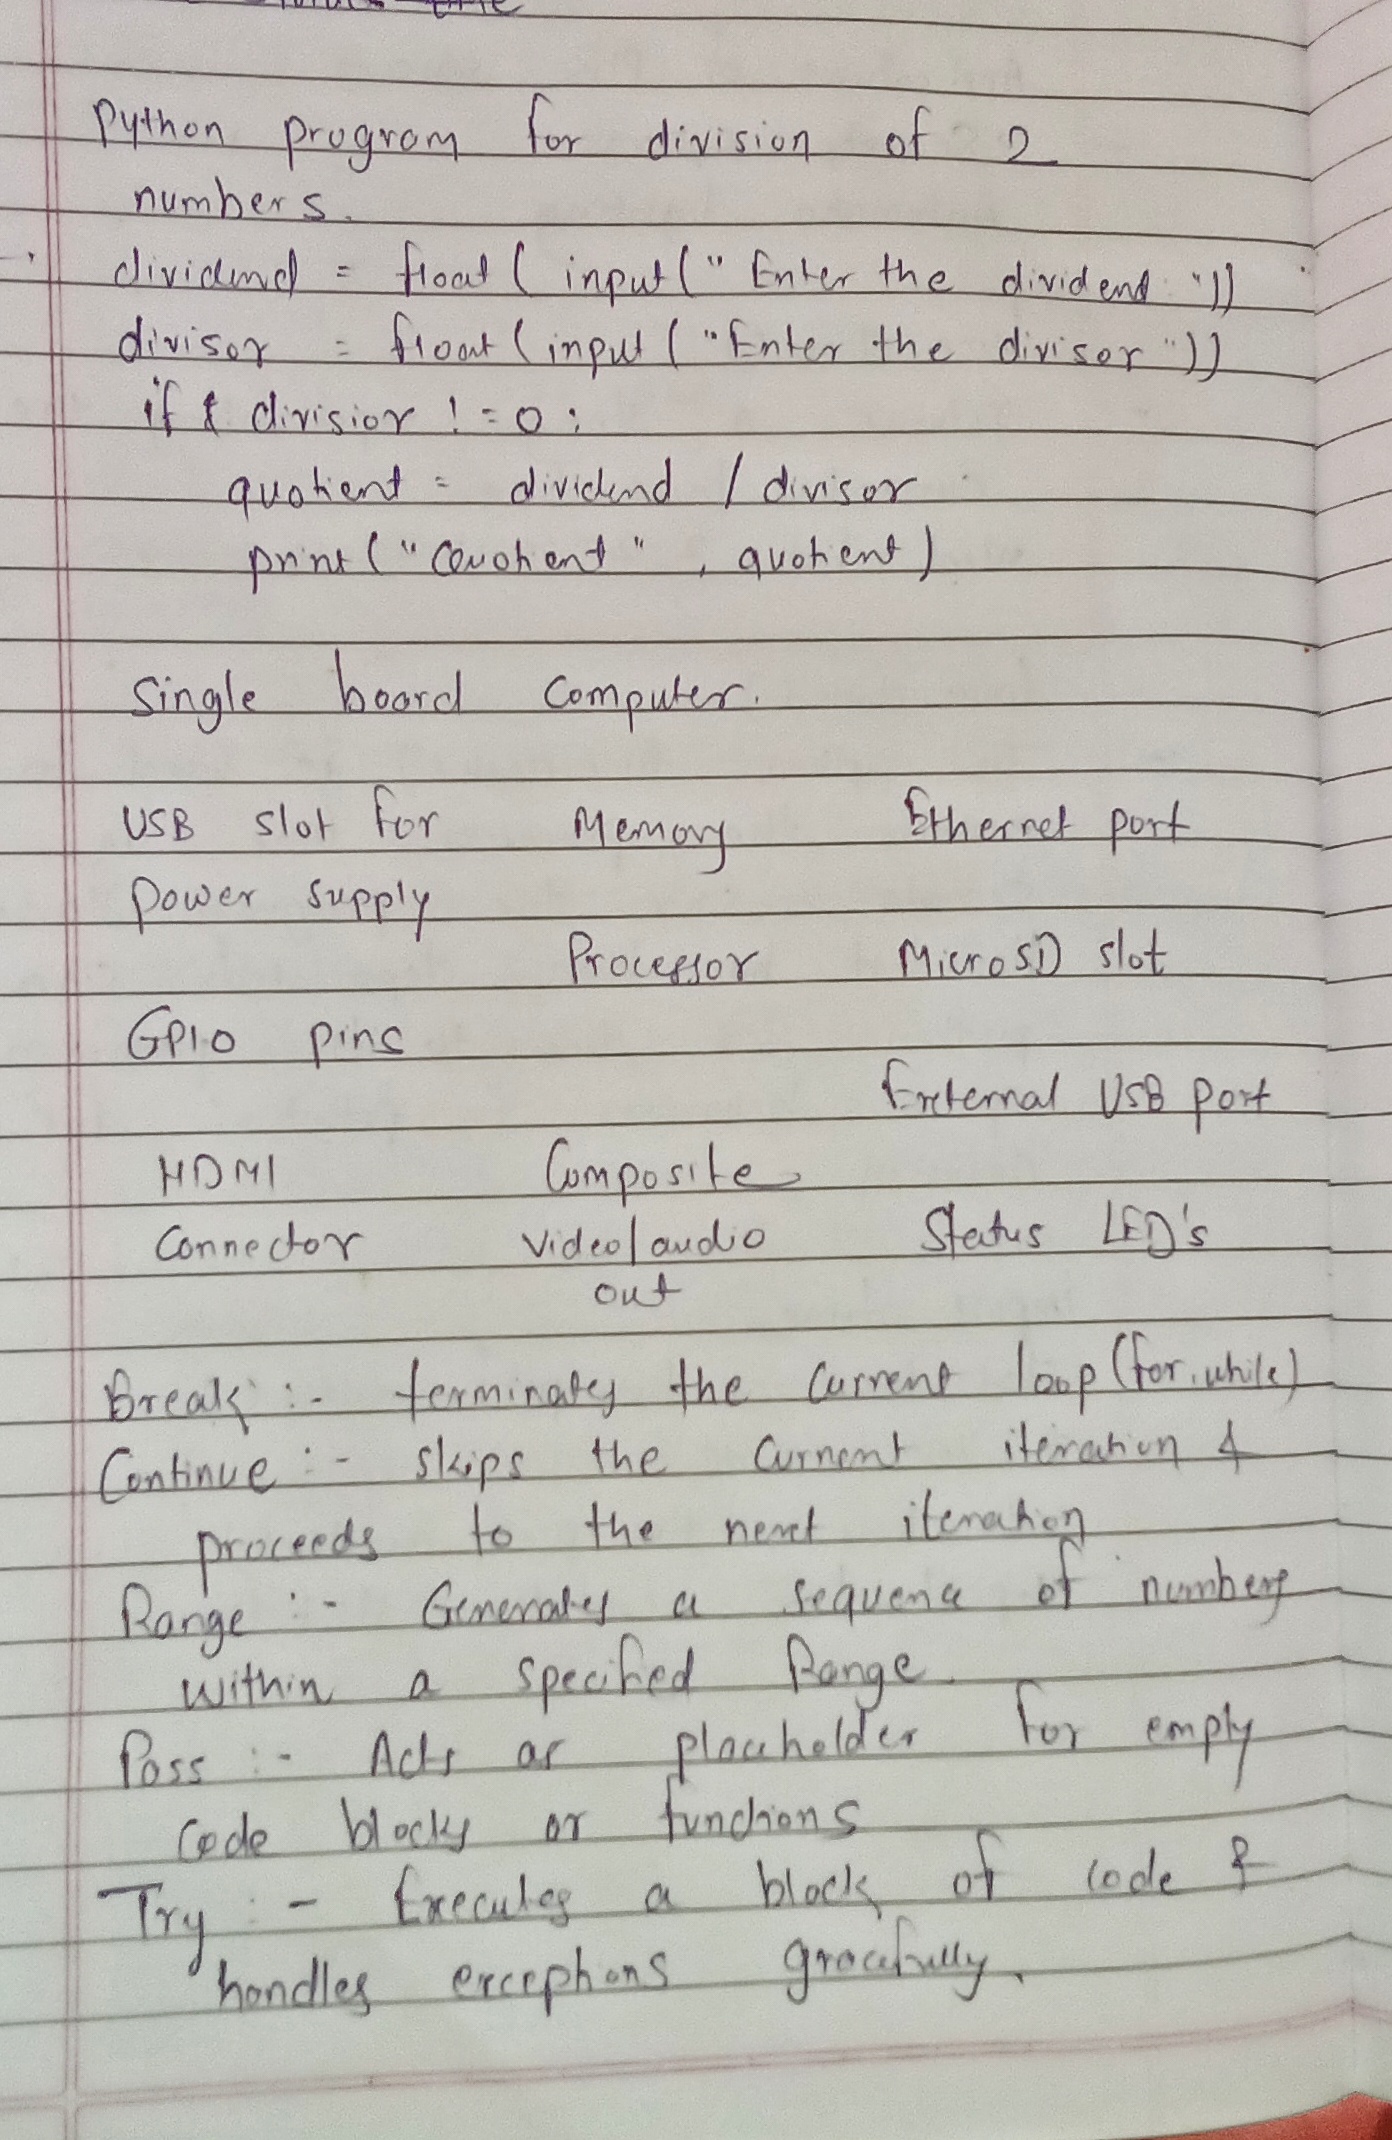 Python program for division of 2
numbers.
dividend = float ( input (" Enter the dividend "))
divisor = float ( input ( "Enter the divisor "))
if divisior ! = 0 :
quotient = dividend / divisor
print ( " Quotient " , quotient )
Single board Computer.
USB slot for Memory Ethernet port
power supply
Processor MicroSD slot
GPIO pins
External USB port
HDMI Composite
Connector Video/audio Status LED's
out
Break :- terminates the current loop (for, while)
Continue :- skips the current iteration &
proceeds to the next iteration
Range :- Generates a sequence of numbers
within a specified Range.
Pass :- Acts as placeholder for empty
Code blocks or functions
Try :- Executes a block of code &
handles exceptions gracefully.